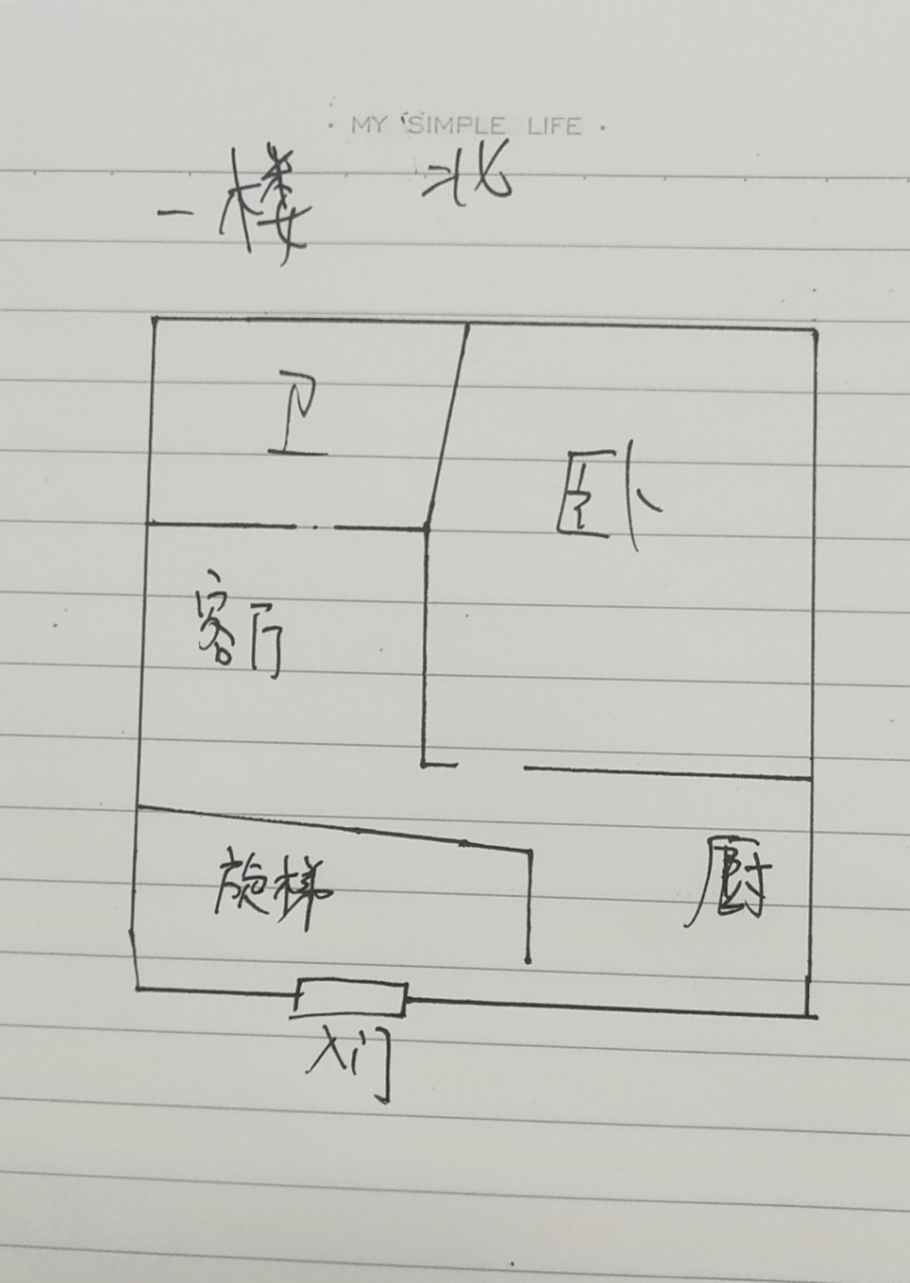 · MY SIMPLE LIFE ·
一楼 北
卫
卧
客厅
旋梯
厨
入门